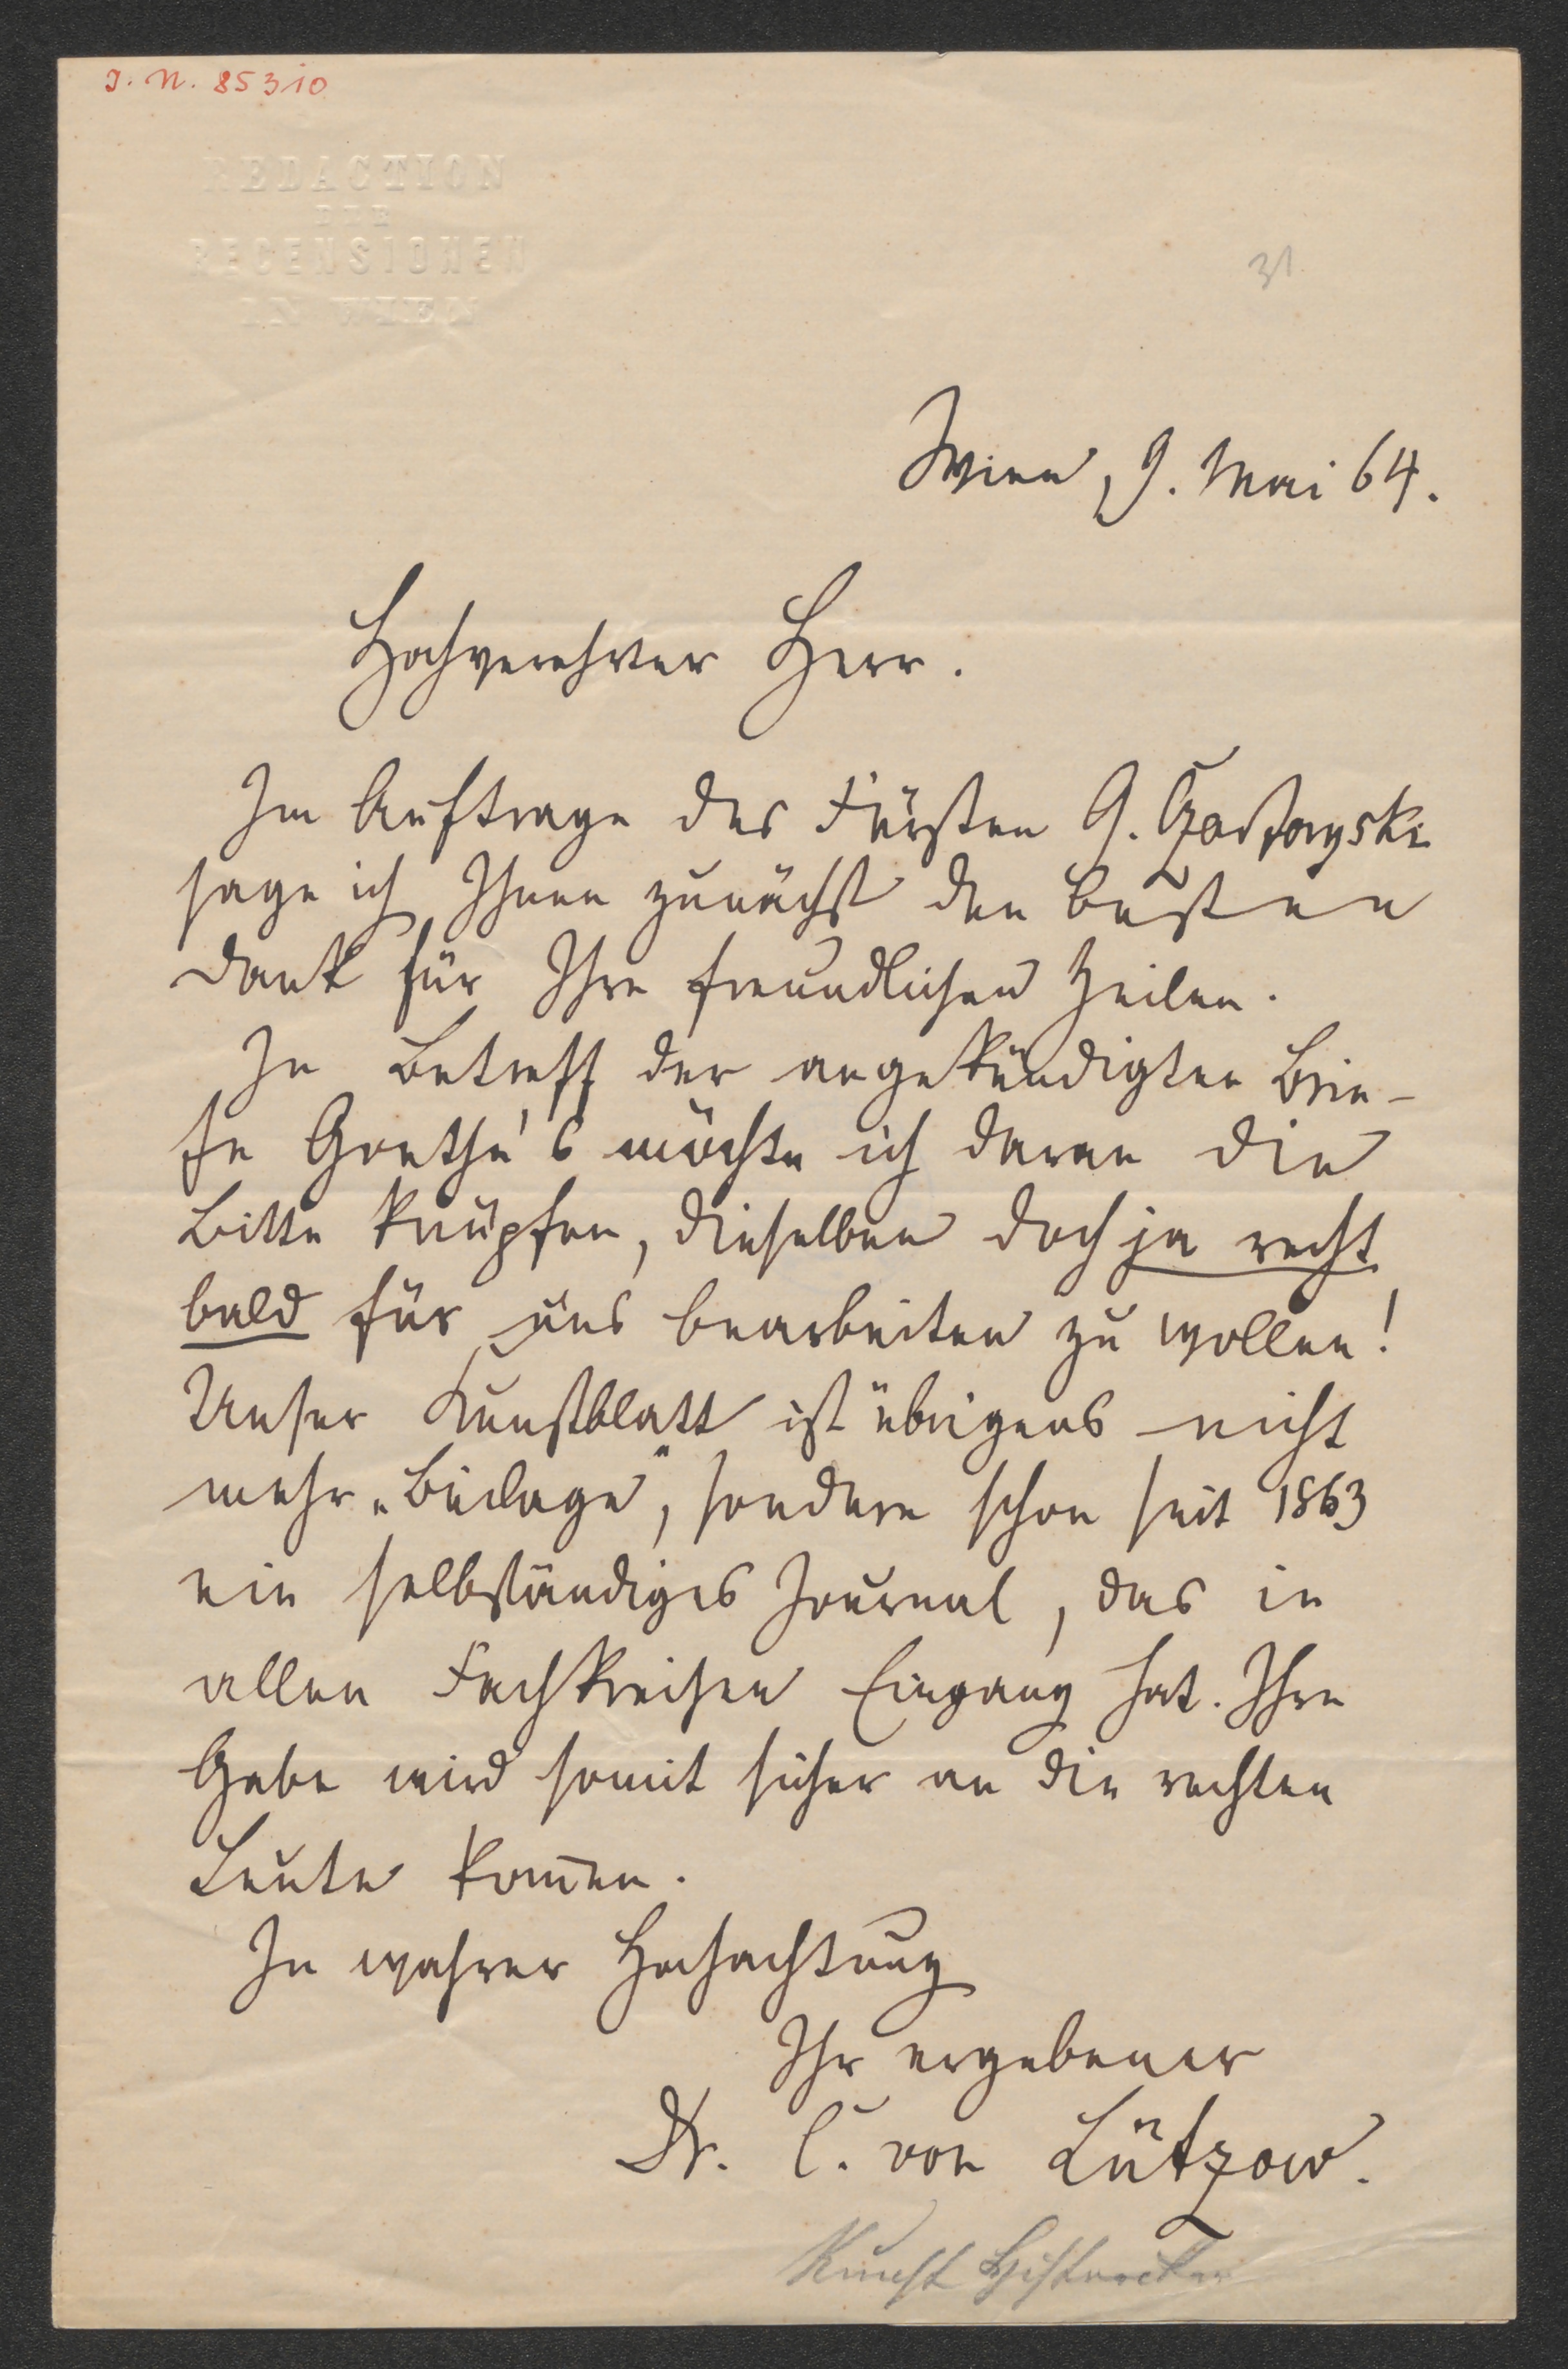 J. N. 85310
REDACTION
DER
RECENSIONEN
IN WIEN
31
Wien, 9. Mai 64.
Hochverehrter Herr.
Im Auftrage des Fürsten G. Czartoryski
sage ich Ihnen zunächst den besten
Dank für Ihre freundlichen Zeilen.
In Betreff der angekündigten Brie-
fe Goethe's möchte ich daran die
Bitte knüpfen, dieselben doch ja recht
bald für uns bearbeiten zu wollen!
Unser Kunstblatt ist übrigens nicht
mehr „Beilage", sondern schon seit 1863
ein selbständiges Journal, das in
allen Fachkreisen Eingang hat. Ihre
Gabe wird somit sicher an die rechten
Leute kom̄en.
In wahrer Hochachtung
Ihr ergebener
Dr. C. von Lützow.
Kunst Historiker